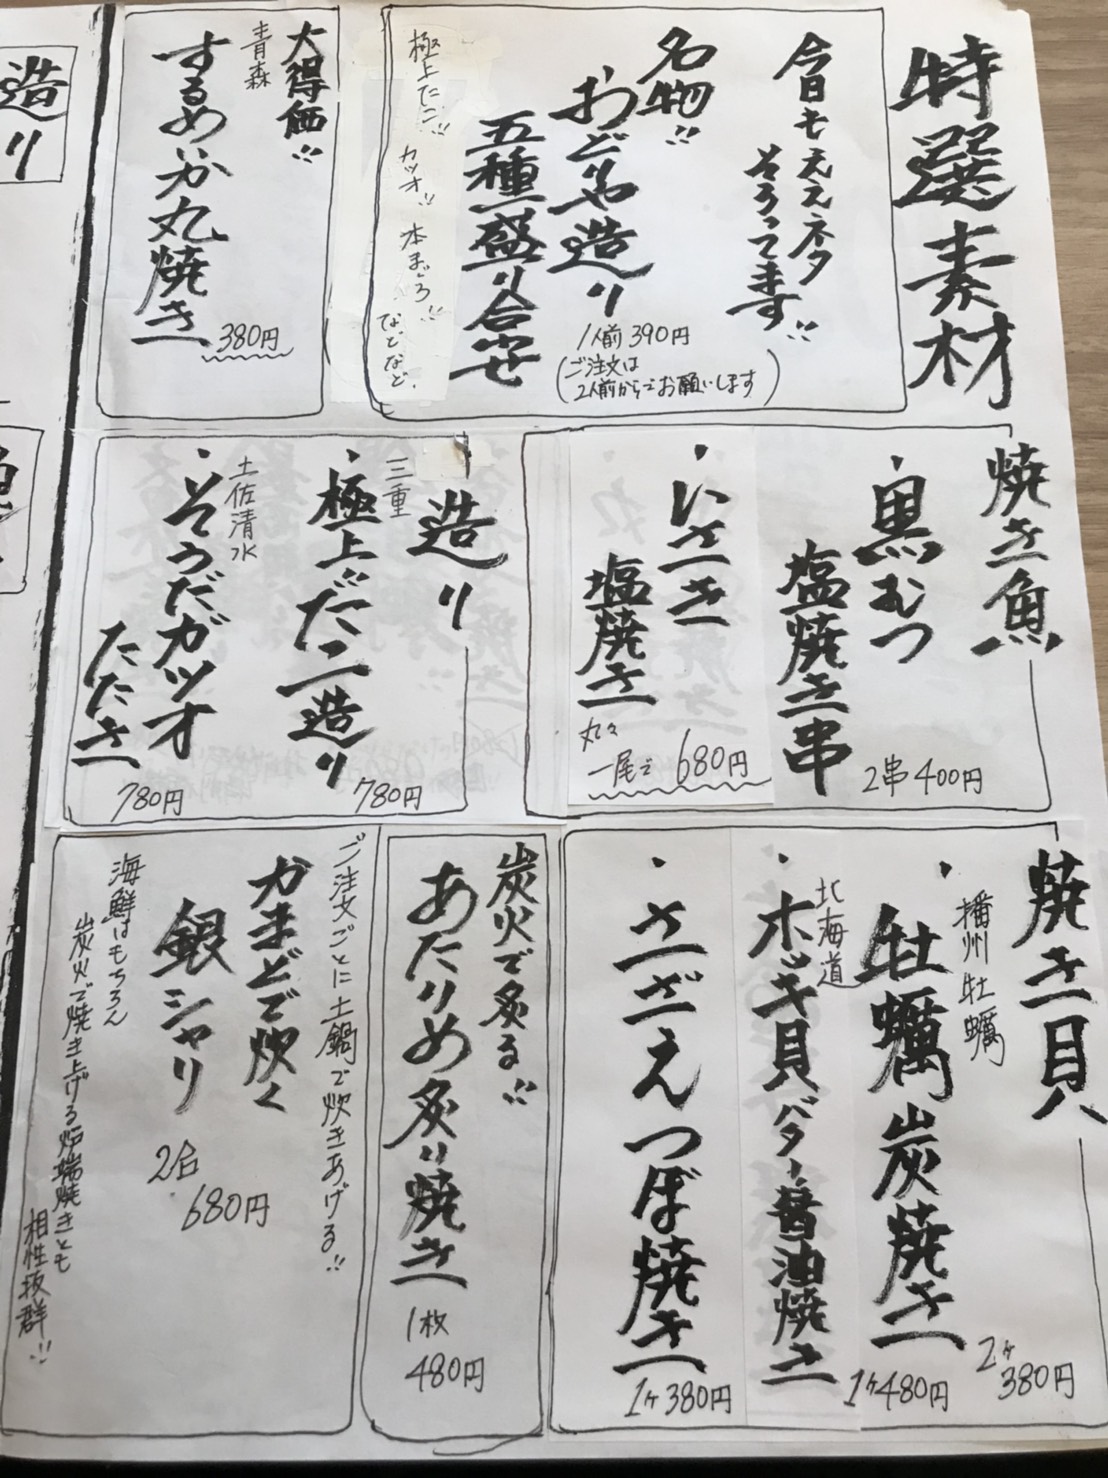 特選素材
今日もええネタ
そろってます!!
名物!!
おどりや造り
五種盛り合せ
1人前390円
(ご注文は
2人前からでお願いします)
極上だこ!! カツオ!! 本まぐろ!! などなど、
大得価!!
青森
するめいか丸焼き
380円
焼き魚
・黒むつ
塩焼き串
2串400円
・いさき
塩焼き
丸々
一尾で 680円
造り
三重
・極上だこ造り
780円
土佐清水
・そうだガツオ
たたき
780円
焼き貝
播州牡蠣
・牡蠣炭焼き
2ケ
380円
北海道
・ホッキ貝バター醤油焼き
1ケ480円
・さざえつぼ焼き
1ケ380円
炭火で炙る!!
あたりめ炙り焼き
1枚
480円
ご注文ごとに土鍋で炊きあげる!!
かまどで炊く
銀シャリ
2合
680円
海鮮はもちろん
炭火で焼き上げる炉端焼きとも
相性抜群!!
造り